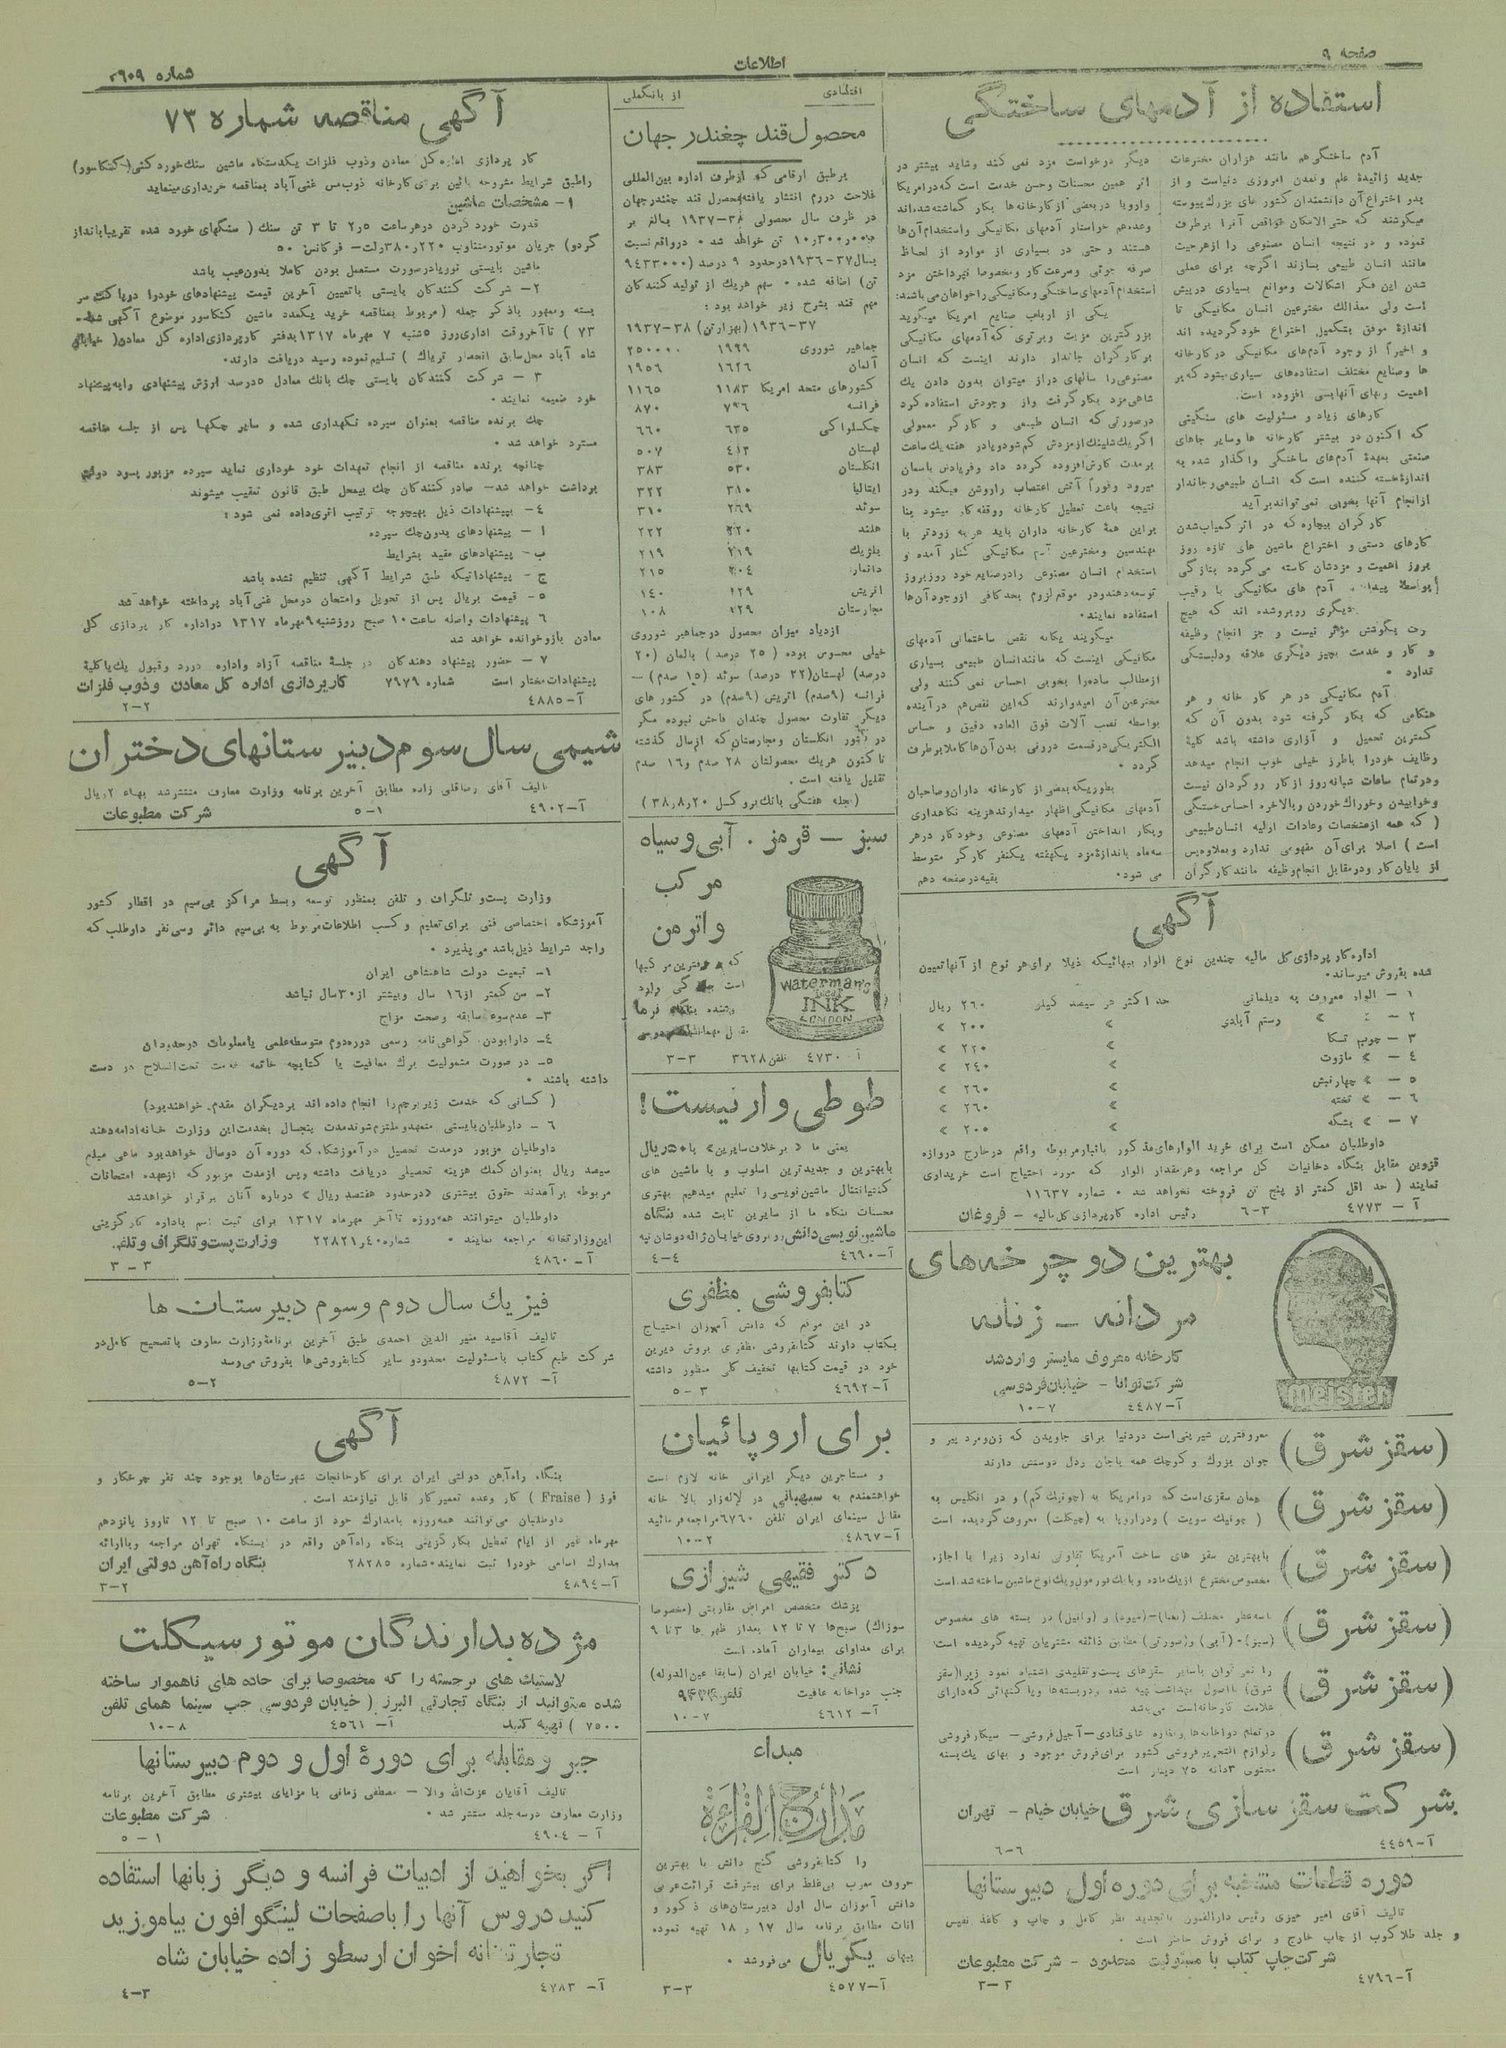 صفحه ۹
اطلاعات
شماره ۳۶۰۹
استفاده از آدمهای ساختگی
آدم ساختگی هم مانند هزاران مخترعات
جدید زائیدهٔ علم وتمدن امروزی دنیاست و از
بدر اختراع آن دانشمندان کشور های بزرگ پیوسته
میکوشند که حتی الامکان نواقص آنرا برطرف
نموده و در نتیجه انسان مصنوعی را ازهرحیث
مانند انسان طبیعی بسازند اگرچه برای عملی
شدن این فکر اشکالات وموانع بسیاری درپیش
است ولی معذالک مخترعین انسان مکانیکی تا
اندازهٔ موفق بتکمیل اختراع خود گردیده اند
و اخیراً از وجود آدم‌های مکانیکی درکارخانه
ها وصنایع مختلف استفاده‌های بسیاری میشود که بر
اهمیت وبهای آنها بسی افزوده است.
کارهای زیاد و مسئولیت های سنگینی
که اکنون در بیشتر کارخانه ها وسایر جاهای
صنعتی بعهدهٔ آدم‌های ساختگی واگذار شده به
اندازهٔ خسته کننده است که انسان طبیعی و جاندار
ازانجام آنها بخوبی نمی تواند برآید
کارگران بیچاره که در اثر کمیاب شدن
کارهای دستی و اختراع ماشین های تازه روز
بروز اهمیت و مزدشان کاسته می گردد بتازگی
بواسطهٔ پیدا آدم های مکانیکی با رقیب
دیگری روبروشده اند که هیچ
بگوشش مؤثر نیست و جز انجام وظیفه
و کار و خدمت بچیز دیگری علاقه ودلبستگی
ندارد •
آدم مکانیکی در هر کار خانه و هر
هنگامی که بکار گرفته شود بدون آن که
کمترین تحمیل و آزاری داشته باشد کلیهٔ
وظایف خودرا باطرز خیلی خوب انجام میدهد
ودرتمام ساعات شبانه روز از کار رو گردان نیست
وخوابیدن وخوراک خوردن وبالاخره احساس خستگی
( که همه ازمختصات وعادات اولیه انسان طبیعی
است ) اصلا برای آن مفهومی ندارد وبعلاوه پس
از پایان کار و درمقابل انجام وظیفه مانند کارگران
دیگر درخواست مزد نمی کند وشاید بیشتر در
اثر همین محسنات وحسن خدمت است که درامریکا
واروپا دربعضی از کارخانه ها بکار گماشته شده‌اند
وعده هم خواستار آدمهای مکانیکی واستخدام آن‌ها
هستند و حتی در بسیاری از موارد از لحاظ
صرفه جوئی وسرعت کار ومخصوصا نپرداختن مزد
استخدام آدمهای ساختگی ومکانیکی را خواهان می باشند:
یکی از ارباب صنایع امریکا میگوید
بزرگترین مزیت وبرتری که آدمهای مکانیکی
بر کارگران جاندار دارند اینست که انسان
مصنوعی را سالهای دراز میتوان بدون دادن یک
شاهی مزد بکار گرفت واز وجودش استفاده کرد
درصورتی که انسان طبیعی و کارگر معمولی
اگر یک شلینک ازمزدش کم شود ویادر هفته یک ساعت
بر مدت کارش افزوده گردد داد وفریادش باسمان
میرود وفوراً آتش اعتصاب را روشن میکند ودر
نتیجه باعث تعطیل کارخانه ووقفه کار میشود بنا
براین همهٔ کارخانه داران باید هرچه زودتر با
مهندسین ومخترعین آدم مکانیکی کنار آمده و
استخدام انسان مصنوعی را درصنایع خود روزبروز
توسعه دهند ودر موقع لزوم بحد کافی ازوجود آن‌ها
استفاده نمایند •
میگویند یگانه نقص ساختمانی آدمهای
مکانیکی اینست که مانند انسان طبیعی بسیاری
ازمطالب ساده‌را بخوبی احساس نمی کنند ولی
مخترعین آن امیدوارند که این نقص هم در آینده
بواسطه نصب آلات فوق العاده دقیق و حساس
الکتریکی درقسمت درونی بدن آن‌ها کاملا برطرف
گردد •
بطوریکه بعضی از کارخانه داران وصاحبان
آدمهای مکانیکی اظهار میدارند هزینه نگاهداری
وبکار انداختن آدمهای مصنوعی وخودکار درهر
سه ماه باندازهٔ مزد یکهفتهٔ یکنفر کارگر متوسط
می شود •
بقیه درصفحه دهم
اقتصادی
از بانگملی
محصول قند چغندر جهان
برطبق ارقامی که از طرف اداره بین‌المللی
فلاحت دررم انتشار یافته محصول قند چغندر جهان
در ظرف سال محصولی ۳۸-۱۹۳۷ بالغ بر
۱۰٫۳۰۰٫۰۰۰ تن خواهد شد • درواقع نسبت
بسال ۳۷-۱۹۳۶ درحدود ۹ درصد (۹۴۳۳۰۰۰
تن) اضافه شده • سهم هریک از تولید کنندگان
مهم قند بشرح زیر خواهد بود :
۳۷-۱۹۳۶ (بهزار تن) ۳۸-۱۹۳۷
جماهیر شوروی ۱۹۹۹ ۲۵۰۰۰۰
آلمان ۱۶۲۶ ۱۹۵۶
کشورهای متحد امریکا ۱۱۸۳ ۱۱۶۵
فرانسه ۷۹۶ ۸۷۰
چکسلواکی ۶۳۵ ۶۶۰
لهستان ۴۱۲ ۵۰۷
انگلستان ۵۳۰ ۳۸۳
ایتالیا ۳۱۰ ۳۲۲
سوئد ۲۶۹ ۳۱۰
هلند ۲۲۰ ۲۲۲
بلژیک ۲۱۹ ۲۱۹
دانمارک ۲۰۴ ۲۱۵
اتریش ۱۲۹ ۱۴۰
مجارستان ۱۲۹ ۱۰۸
ازدیاد میزان محصول درجماهیر شوروی
خیلی محسوس بوده ( ۲۵ درصد ) بالمان (۲۰
درصد) لهستان (۲۲ درصد) سوئد (۱۵ صدم) –
فرانسه (۹صدم) اتریش (۹صدم) در کشور های
دیگر تفاوت محصول چندان فاحش نبوده مگر
در کشور انگلستان ومجارستان که ازسال گذشته
تا کنون هریک محصولشان ۲۸ صدم و۱۶ صدم
تقلیل یافته است •
(مجله هفتگی بانک بروکسل ۳۸٫۸٫۲۰ )
آگهی مناقصه شماره ۷۳
کار پردازی اداره کل معادن وذوب فلزات یکدستگاه ماشین سنگ خورد کنی (کنکاسور)
راطبق شرایط مشروحه پائین برای کارخانه ذوب مس غنی آباد بمناقصه خریداری مینماید
۱- مشخصات ماشین
قدرت خورد کردن درهرساعت ۲٫۵ تا ۳ تن سنگ ( سنگهای خورد شده تقریبا باندازه
گردو) جریان موتور متناوب ۲۲۰ر۳۸۰ ولت- فرکانس ۵۰
ماشین بایستی نو ویا درصورت مستعمل بودن کاملا بدون عیب باشد
۲- شرکت کنندگان بایستی باتعیین آخرین قیمت پیشنهادهای خودرا درپاکت سر
بسته وممهور باذکر جمله (مربوط بمناقصه خرید یکعدد ماشین کنکاسور موضوع آگهی شماره
۷۳ ) تا آخروقت اداری روز ۵شنبه ۷ مهرماه ۱۳۱۷ بدفتر کارپردازی اداره کل معادن ( خیابان
شاه آباد محل سابق انحصار تریاک ) تسلیم نموده رسید دریافت دارند.
۳ - شرکت کنندگان بایستی چک بانک معادل ۵درصد ارزش پیشنهادی را به پیشنهاد
خود ضمیمه نمایند •
چک برنده مناقصه بعنوان سپرده نگهداری شده و سایر چکها پس از جلسه مناقصه
مسترد خواهد شد •
چنانچه برنده مناقصه از انجام تعهدات خود خودداری نماید سپرده مزبور بسود دولت
برداشت خواهد شد- صادر کنندگان چک بیمحل طبق قانون تعقیب میشوند
۴- بپیشنهادات ذیل بهیچوجه ترتیب اثری داده نمی شود :
ا - پیشنهادهای بدون چک سپرده
ب- پیشنهادهای مقید بشرایط
ج- پیشنهاداتیکه طبق شرایط آگهی تنظیم نشده باشد
۵- قیمت بریال پس از تحویل وامتحان درمحل غنی آباد پرداخته خواهد شد
۶ پیشنهادات واصله ساعت ۱۰ صبح روزشنبه ۹ مهرماه ۱۳۱۷ دراداره کار پردازی کل
معادن باز و خوانده خواهد شد
۷ - حضور پیشنهاد دهندگان در جلسهٔ مناقصه آزاد واداره دررد وقبول یک یا کلیهٔ
پیشنهادات مختار است شماره ۷۹۷۹ کارپردازی اداره کل معادن وذوب فلزات
آ-۴۸۸۵ ۲-۲
شیمی سال سوم دبیرستانهای دختران
تالیف آقای رضاقلی زاده مطابق آخرین برنامه وزارت معارف منتشر شد بهاء ۲ریال
آ-۴۹۰۲ ۱-۵ شرکت مطبوعات
آگهی
وزارت پست و تلگراف و تلفن بمنظور توسعه وبسط مراکز بی‌سیم در اقطار کشور
آموزشگاه اختصاصی فنی برای تعلیم و کسب اطلاعات مربوط به بی‌سیم دائر وسی نفر داوطلب که
واجد شرایط ذیل باشد می پذیرد •
۱- تبعیت دولت شاهنشاهی ایران
۲- سن کمتر از۱۶ سال وبیشتر از۳۰ سال نباشد
۳- عدم سوءسابقه وصحت مزاج
۴- دارا بودن گواهی نامه رسمی دوره دوم متوسطه علمی یا معلومات درحدود آن
۵- در صورت مشمولیت برگ معافیت یا کتابچه خاتمه خدمت تحت السلاح در دست
داشته باشند •
( کسانی که خدمت زیرپرچم را انجام داده اند بردیگران مقدم خواهند بود)
۶ - داوطلبان بایستی متعهد و ملتزم شوند مدت پنجسال بخدمت این وزارت خانه ادامه دهند
داوطلبان مزبور درمدت تحصیل در آموزشگاه که دوره آن دوسال خواهد بود ماهی مبلغ
سیصد ریال بعنوان کمک هزینه تحصیلی دریافت داشته وپس ازمدت مزبور که ازعهده امتحانات
مربوطه برآمدند حقوق بیشتری «درحدود هفتصد ریال» درباره آنان برقرار خواهد شد
داوطلبان میتوانند همه‌روزه تا آخر مهرماه ۱۳۱۷ برای ثبت اسم باداره کارگزینی
این وزارتخانه مراجعه نمایند • شماره ۲۲۸۲۱٫۴۰ وزارت پست و تلگراف و تلفن
آ- ۴۸۶۰ ۳ - ۳
فیزیک سال دوم وسوم دبیرستان ها
تالیف آقاسید منیر الدین احمدی طبق آخرین برنامهٔ وزارت معارف باتصحیح کامل در
شرکت طبع کتاب بامسئولیت محدود و سایر کتابفروشی‌ها بفروش می‌رسد
آ- ۴۸۷۲ ۲-۵
آگهی
بنگاه راه‌آهن دولتی ایران برای کارخانجات شهرستان‌ها بوجود چند نفر چرخکار و
فرز ( Fraise) کار وعده تعمیر کار قابل نیازمند است .
داوطلبان می‌توانند همه‌روزه بامدارک خود از ساعت ۱۰ صبح تا ۱۲ تا روز پانزدهم
مهرماه غیر از ایام تعطیل بکارگزینی بنگاه راه‌آهن واقع در ایستگاه تهران مراجعه وباارائه
مدارک اسامی خودرا ثبت نمایند • شماره ۲۸۲۸۵ بنگاه راه آهن دولتی ایران
آ-۴۸۹۴ ۲-۳
مژده بدارندگان موتورسیکلت
لاستیک های برجسته را که مخصوصا برای جاده های ناهموار ساخته
شده میتوانید از بنگاه تجارتی البرز ( خیابان فردوسی جنب سینما همای تلفن
۷۵۰۰ ) تهیه کنید آ- ۴۵۶۱ ۸-۱۰
جبر ومقابله برای دورهٔ اول و دوم دبیرستانها
تالیف آقایان عزت‌الله والا - مصطفی زمانی با مزایای بیشتری مطابق آخرین برنامه
وزارت معارف درسه جلد منتشر شد • شرکت مطبوعات
آ - ۴۹۰۴ ۱ - ۵
اگر بخواهید از ادبیات فرانسه و دیگر زبانها استفاده
کنید دروس آنها را باصفحات لینگوافون بیاموزید
تجارتخانه اخوان ارسطو زاده خیابان شاه
آ- ۴۷۸۳ ۳-۴
سبز – قرمز . آبی وسیاه
مرکب
واترمن
که بهترین مرکبها
است
Waterman's
INK
LONDON
آ ۴۷۳۰ تلفن ۳۶۲۸ ۳-۳
طوطی وار نیست!
یعنی ما « برخلاف سایرین» با ۵۰ ریال
بابهترین و جدیدترین اسلوب و با ماشین های
کنتیاننتال ماشین نویسی را تعلیم میدهیم بهتری
محسنات بنگاه ما از سایرین ثابت شده بنگاه
ماشین نویسی دانش روبروی خیابان ژاله دوشان تپه
آ-۴۶۹۰ ۴-۴
کتابفروشی مظفری
در این موقع که دانش آموزان احتیاج
بکتاب دارند کتابفروشی مظفری بروش دیرین
خود در قیمت کتابها تخفیف کلی منظور داشته
آ-۴۶۹۲ ۳-۵
برای اروپائیان
و مستاجرین دیگر ایرانی خانه لازم است
خواهشمندم به سبهبانی در لاله‌زار بالا خانه
مقابل سینمای ایران تلفن ۶۷۶۰ مراجعه فرمائید
آ-۴۸۶۷ ۲-۱۰
دکتر فقیهی شیرازی
پزشک متخصص امراض مقاربتی (مخصوصا
سوزاک) صبح‌ها ۷ تا ۱۲ بعداز ظهرها ۳ تا ۹
برای مداوای بیماران آماده است
نشانی: خیابان ایران (سابقا عین‌الدوله)
جنب دواخانه عافیت
آ- ۴۶۱۲ ۷-۱۰
مبداء
مدارج القراءة
را کتابفروشی گنج دانش با بهترین
حروف معرب بی‌غلط برای پیشرفت قرائت عربی
دانش آموزان سال اول دبیرستان‌های ذکور و
اناث مطابق برنامه سال ۱۷ و ۱۸ تهیه نموده
ببهای یکریال می‌فروشد •
آ-۴۵۷۷ ۳-۳
آگهی
اداره کارپردازی کل مالیه چندین نوع الوار ببهائیکه ذیلا برای هر نوع از آنها تعیین
شده بفروش میرساند •
۱ - الوار معروف به دیلمانی حد اکثر هر سیصد کیلو ۲۶۰ ریال
۲ - » » رستم آبادی » ۲۰۰ »
۳ - چوبی تسکا » ۲۲۰ »
۴ - » مازوت » ۲۴۰ »
۵ - » چهارتبش » ۲۶۰ »
۶ - » تخته » ۲۶۰ »
۷ - » پشگه » ۲۰۰ »
داوطلبان ممکن است برای خرید الوارهای مذکور بانبار مربوطه واقع درخارج دروازه
قزوین مقابل بنگاه دخانیات کل مراجعه وهرمقدار الوار که مورد احتیاج است خریداری
نمایند ( حد اقل کمتر از پنج تن فروخته نخواهد شد • شماره ۱۱۶۳۷
آ - ۴۷۷۳ ۳-۶ رئیس اداره کارپردازی کل مالیه - فروغان
بهترین دوچرخه‌های
مردانه – زنانه
کارخانه معروف مایستر وارد شد
شرکت توانا - خیابان فردوسی
آ-۴۴۸۷ ۷-۱۰
meister
(سقز شرق) معروفترین شیرینی است دردنیا برای جاویدن که زن ومرد پیر و
جوان بزرگ و کوچک همه باجان ودل دوستش دارند
(سقز شرق) همان سقزی است که درامریکا به (چونیک گم) و در انگلیس به
( چونیک سویت ) ودراروپا به (چیکلت) معروف گردیده است
(سقز شرق) بابهترین سقز های ساخت آمریکا تفاوتی ندارد زیرا با اجازه
مخصوص مخترع ازیک ماده و بایک فورمول و یک نوع ماشین ساخته شده است
(سقز شرق) باسه عطر مختلف (نعنا)-(میوه) و (وانیل) در بسته های مخصوص
(سبز)•(آبی) و(صورتی) مطابق ذائقه مشتریان تهیه گردیده است
(سقز شرق) را نمی توان باسایر سقزهای پست وتقلیدی اشتباه نمود زیرا (سقز
شرق) بااصول بهداشت تهیه شده ودربسته‌ها وپاکتهائی که دارای
علامت کارخانه است می باشد
(سقز شرق) درتمام دواخانه‌ها ومغازه های قنادی-آجیل فروشی - سیگار فروشی
ولوازم التحریر فروشی کشور برای فروش موجود و بهای یک بسته
محتوی ۳دانه ۷۵ دینار است
شرکت سقز سازی شرق خیابان خیام - تهران
آ-۴۴۵۹ ۶-۶
دوره قطعات منتخبه برای دوره اول دبیرستانها
تالیف آقای امیر هیزی رئیس دارالفنون باتجدید نظر کامل و چاپ و کاغذ نفیس
و جلد طلاکوب از چاپ خارج و برای فروش حاضر است •
شرکت چاپ کتاب با مسئولیت محدود - شرکت مطبوعات
آ-۴۷۹۶ ۲-۳